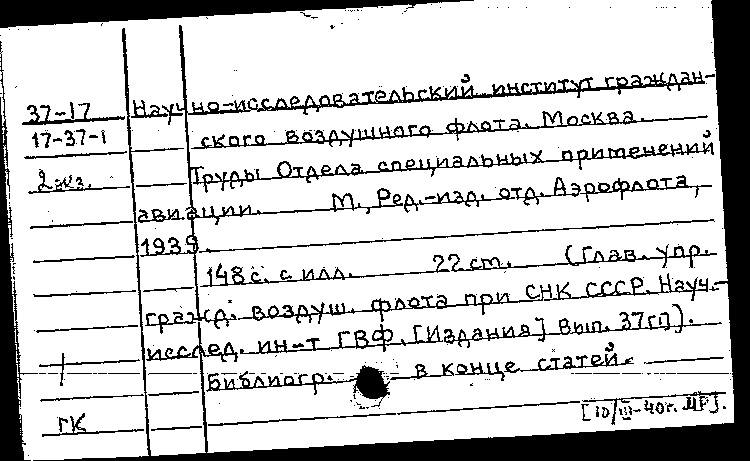 37-17 Научно-исследовательский институт граждан-
17-37-1 ского воздушного флота. Москва.
2 экз. Труды Отдела специальных применений
авиации. М., Ред.-изд. отд. Аэрофлота,
1939.
148 с. с илл. 22 cm. (Глав. упр.
гражд. воздуш. флота при СНК СССР. Науч.-
исслед. ин-т ГВФ. [Издания] Вып. 37
Библиогр. в конце статей.
ГК [10/III-40г.